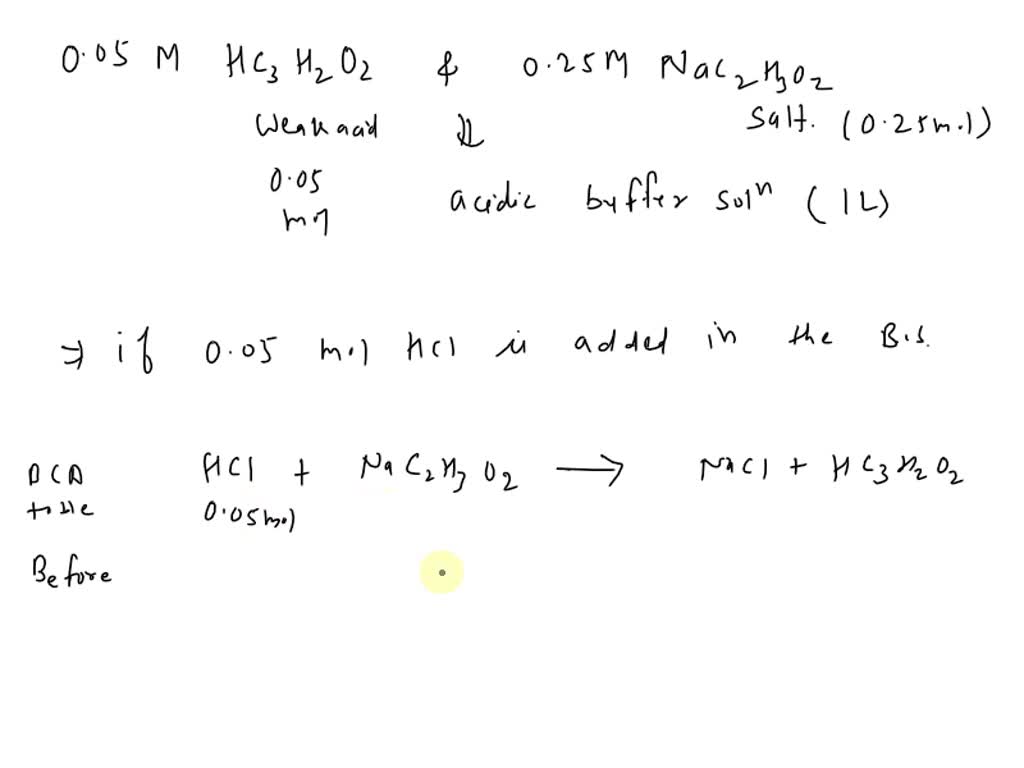 0.05 M HC3H2O2 & 0.25M NaC2H3O2
Weak acid ⇓ Salt. (0.25mol)
0.05 mol
acidic buffer solⁿ (1L)
⇒ if 0.05 mol HCl is added in the B.S.
BCA table
HCl + NaC2H3O2 ⟶ NaCl + HC3H2O2
0.05mol
Before